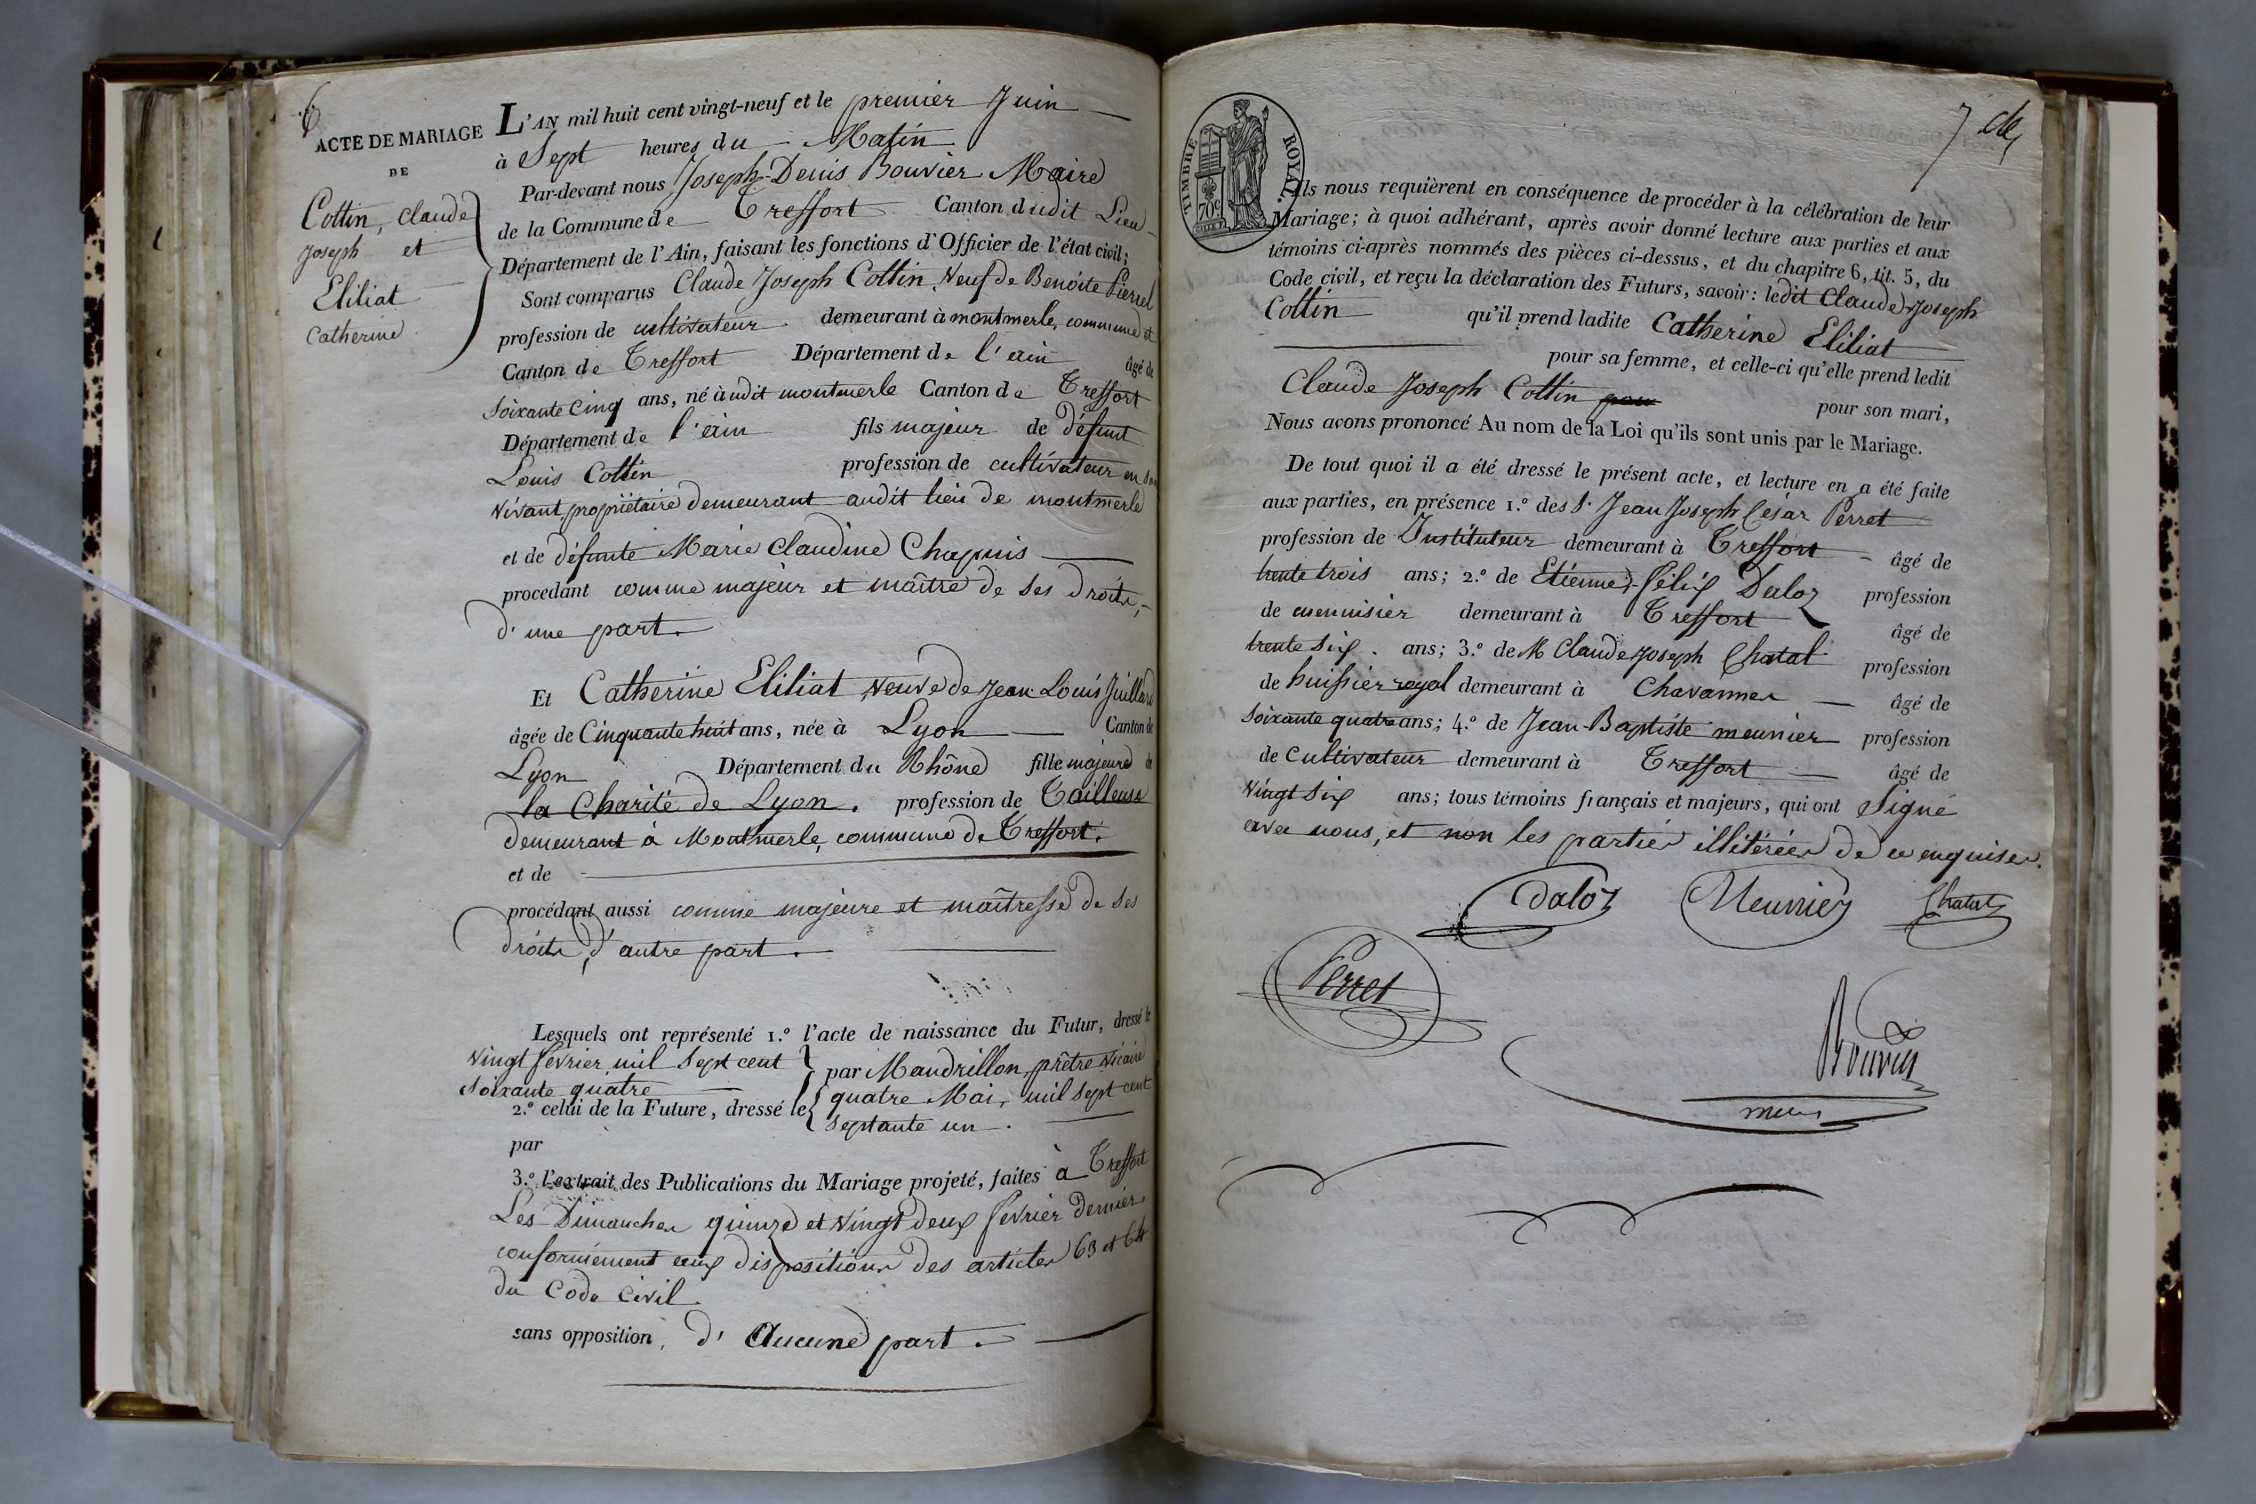 6
ACTE DE MARIAGE
DE
Cottin, Claude
Joseph et
Eliliat
Catherine
L'AN mil huit cent vingt-neuf et le premier Juin
à Sept heures du Matin
Par-devant nous Joseph-Denis Bouvier Maire
de la Commune de Treffort Canton dudit Lieu
Département de l'Ain, faisant les fonctions d'Officier de l'état civil;
Sont comparus Claude Joseph Cottin, Veuf de Benoite
profession de cultivateur demeurant à montmerle, commune et
Canton de Treffort Département de l'ain âgé de
soixante cinq ans, né àudit montmerle Canton de Treffort
Département de l'ain fils majeur de défunt
Louis Cottin profession de cultivateur en son
vivant, propriétaire demeurant audit lieu de montmerle
et de défunte Marie Claudine Chapuis
procédant comme majeur et maître de ses droits,
d'une part.
Et Catherine Eliliat Veuve de Jean Louis Juillard
âgée de Cinquante huit ans, née à Lyon Canton de
Lyon Département du Rhône fille majeure de
la Charité de Lyon. profession de Tailleuse
demeurant à Montmerle, commune de Treffort.
et de
procédant aussi comme majeure et maîtresse de ses
droits, d'autre part.
Lesquels ont représenté 1.º l'acte de naissance du Futur, dressé le
vingt février mil sept cent par Mandrillon, prêtre vicaire
soixante quatre
2.º celui de la Future, dressé le quatre Mai, mil sept cent
septante un.
par
3.º l'extrait des Publications du Mariage projeté, faites à Treffort
Les Dimanches quinze et vingt deux février dernier
conformément aux dispositions des articles 63 et 64
du Code Civil.
sans opposition, d'Aucune part.
TIMBRE ROYAL.
70c
7
Ils nous requièrent en conséquence de procéder à la célébration de leur
Mariage; à quoi adhérant, après avoir donné lecture aux parties et aux
témoins ci-après nommés des pièces ci-dessus, et du chapitre 6, tit. 5, du
Code civil, et reçu la déclaration des Futurs, savoir: ledit Claude Joseph
Cottin qu'il prend ladite Catherine Eliliat
pour sa femme, et celle-ci qu'elle prend ledit
Claude Joseph Cottin pour son mari,
Nous avons prononcé Au nom de la Loi qu'ils sont unis par le Mariage.
De tout quoi il a été dressé le présent acte, et lecture en a été faite
aux parties, en présence 1.º des S. Jean Joseph César Perret
profession de Instituteur demeurant à Treffort âgé de
trente trois ans; 2.º de Etienne-félix Daloz profession
de menuisier demeurant à Treffort âgé de
trente six. ans; 3.º de M Claude Joseph Chatat profession
de huissier royal demeurant à Chavannes âgé de
soixante quatre ans; 4.º de Jean-Baptiste meunier profession
de Cultivateur demeurant à Treffort âgé de
vingt six ans; tous témoins français et majeurs, qui ont Signé
avec nous, et non les parties illitérées de ce enquises.
Daloz Meunier Chatat
Perret
Bouvier